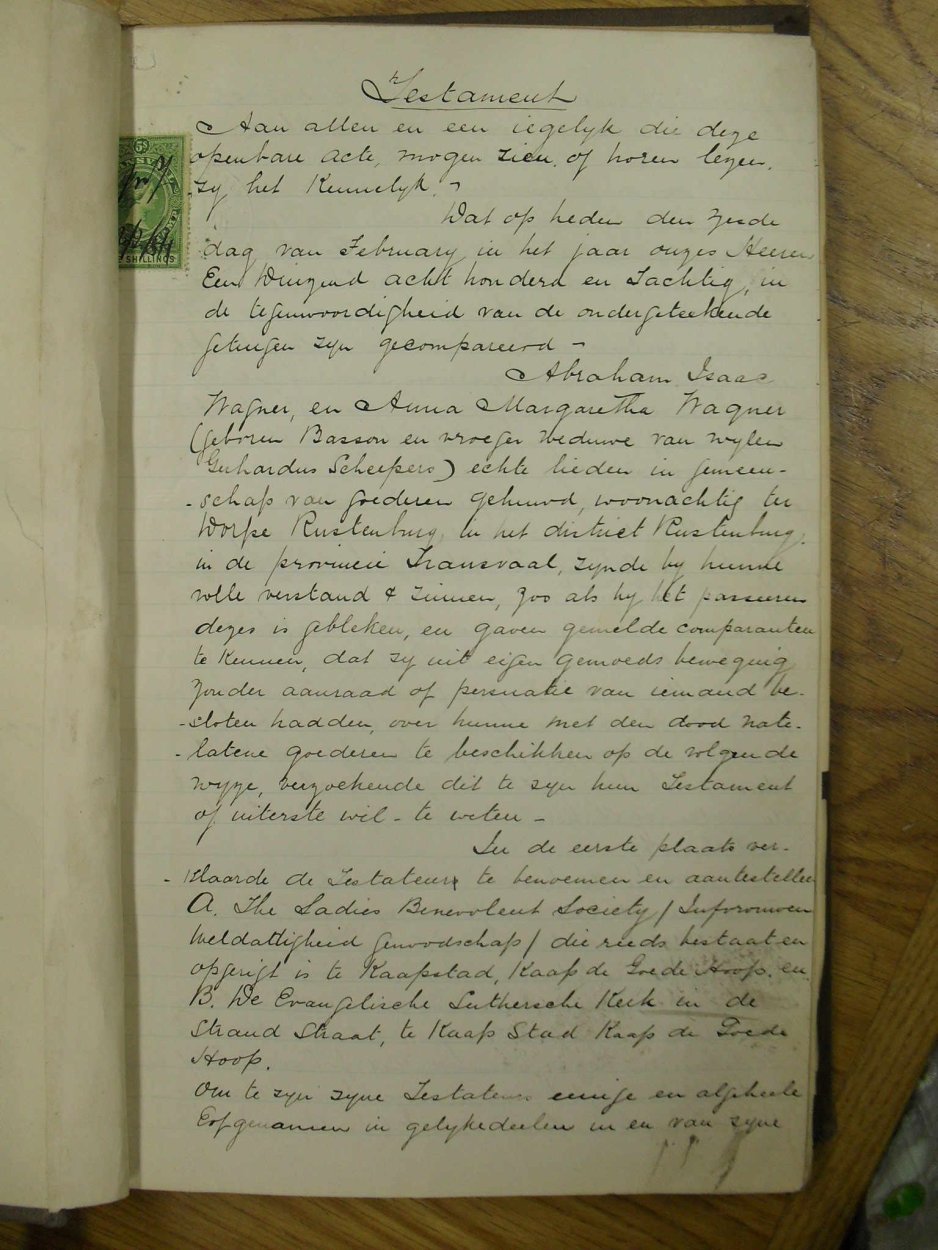 Testament
Aan allen en een iegelyk die deze
openbare acte, mogen zien of horen lezen,
zy het Kennelyk. -
Dat op heden den zesde
dag van February in het jaar onzes Heeren
Een Duizend acht honderd en Tachtig, in
de tegenwoordigheid van de ondergeteekende
getuigen zyn gecompareerd -
Abraham Isaac
Wagner, en Anna Margaretha Wagner
(geboren Basson en vroeger Weduwe van wylen
Gerhardus Scheepers) echte lieden in gemeen-
-schap van goederen gehuwd, woonachtig ter
Dorpe Rustenburg, in het district Rustenburg,
in de provincie Transvaal, zynde by hunne
volle verstand & zinnen, zoo als by het passeeren
dezes is gebleken, en gaven gemelde comparanten
te Kennen, dat zy uit eigen gemoeds beweging
zonder aanraad of persuatie van iemand be-
-sloten hadden, over hunne met den dood nate-
-latene goederen te beschikken op de volgende
wyze, verzoekende dit te zyn hun Testament
of uiterste wil - te weten -
In de eerste plaats ver-
-klaarde de Testateur te benoemen en aantestellen
A. The Ladies Benevolent Society /
Weldadigheid genoodschap/ die reeds bestaat en
opgerigt is te Kaapstad, Kaap de Goede Hoop, en
B. De Evangelische Luthersche Kerk in de
Strand Straat, te Kaap Stad Kaap de Goede
Hoop.
Om te zyn zyne Testateurs eenige en algeheele
Erfgenamen in gelykedeelen in en van zyne
SHILLINGS